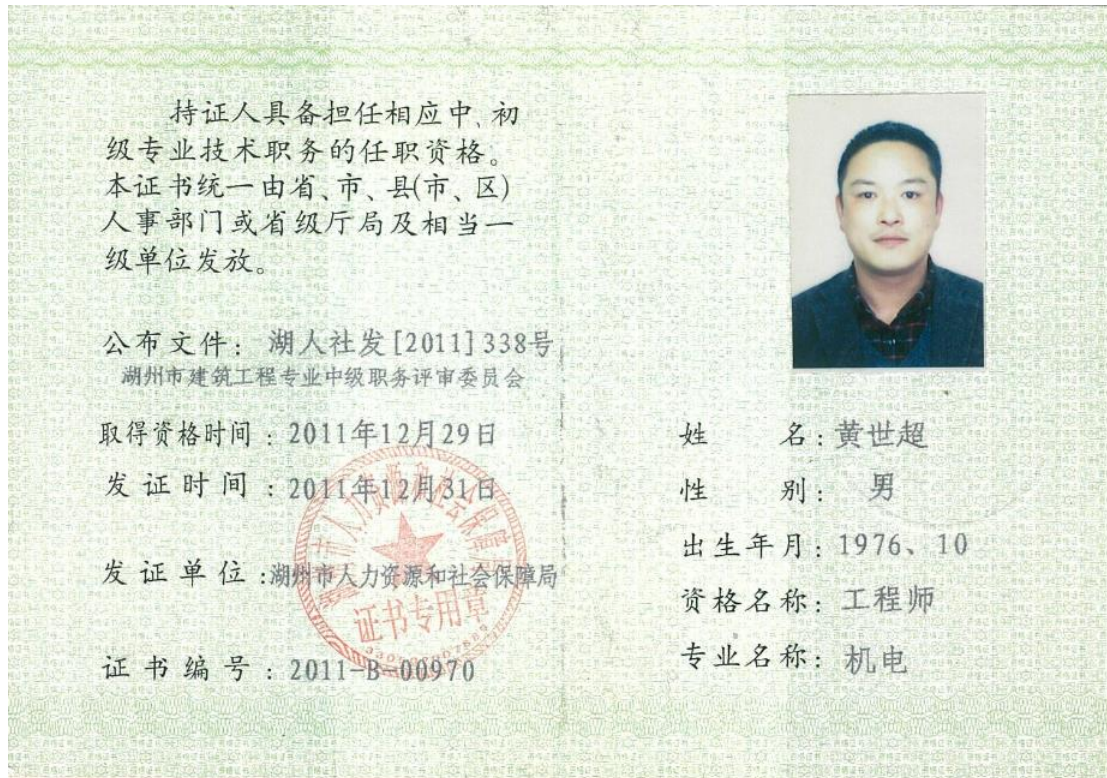 持证人具备担任相应中、初
级专业技术职务的任职资格。
本证书统一由省、市、县(市、区)
人事部门或省级厅局及相当一
级单位发放。
公布文件：湖人社发[2011]338号
湖州市建筑工程专业中级职务评审委员会
取得资格时间：2011年12月29日
发证时间：2011年12月31日
发证单位：湖州市人力资源和社会保障局
证书专用章
证书编号：2011-B-00970
姓名：黄世超
性别：男
出生年月：1976、10
资格名称：工程师
专业名称：机电